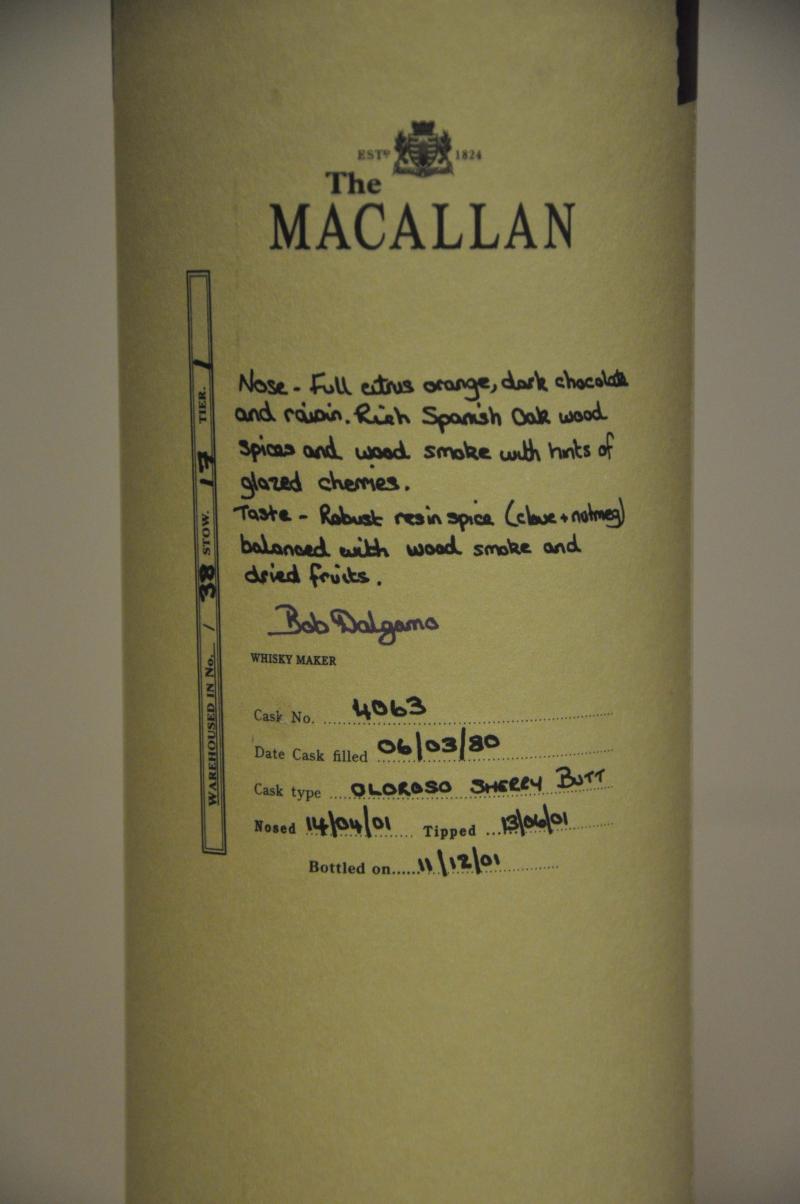 ESTD 1824
The
MACALLAN
Nose - Full citrus orange, dark chocolate
and raisin. Rich Spanish Oak wood
spices and wood smoke with hints of
glazed cherries.
Taste - Robust resin spice (clove + nutmeg)
balanced with wood smoke and
dried fruits.
Bob Dalgarno
WHISKY MAKER
Cask No. 4063
Date Cask filled 06/03/80
Cask type OLOROSO SHERRY BUTT
Nosed 14/04/01 Tipped 13/06/01
Bottled on 11/12/01
WAREHOUSED IN No. / 38 STOW. 17 TIER. 1